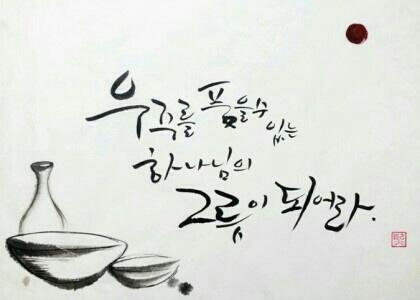 우주를 품을 수 있는
하나님의
그릇이 되어라.